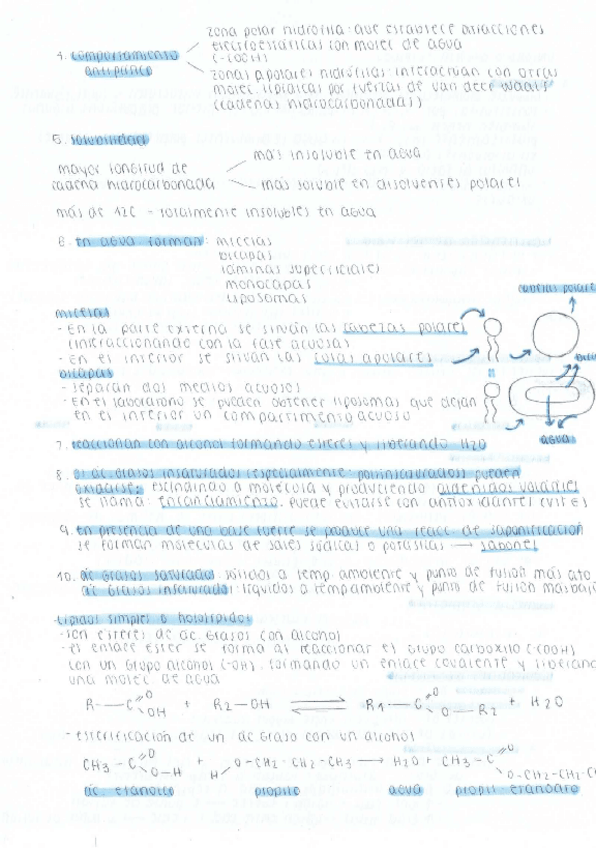 zona polar hidrófila: que establece atracciones
4. comportamiento electroestáticas con molec de agua
antipático (-COOH)
zonas apolares hidrófilas: interactúan con otras
molec. lipídicas por fuerzas de van deer waals
(cadenas hidrocarbonadas)
5. solubilidad
mayor longitud de más insoluble en agua
cadena hidrocarbonada más soluble en disolventes polares
más de 12C = totalmente insolubles en agua
6. en agua forman: micelas
bicapas
láminas superficiales
monocapas
liposomas
cabezas polares
micelas
- En la parte externa se sitúan las cabezas polares
(interaccionando con la fase acuosa)
- En el interior se sitúan las colas apolares
bicapas
- separan dos medios acuosos
- En el laboratorio se pueden obtener liposomas que dejan
en el interior un compartimento acuoso
agua
7. reaccionan con alcohol formando ésteres y liberando H2O
8. ác. grasos insaturados (especialmente poliinsaturados) pueden
oxidarse, escindiendo a molécula y produciendo aldehidos volátiles
se llama: enranciamiento. puede evitarse con antioxidantes (vit E)
9. En presencia de una base fuerte se produce una reacc. de saponificación
se forman moléculas de sales sódicas o potásicas → jabones
10. ác grasos saturados: sólidos a temp ambiente y punto de fusión más alto
ác grasos insaturados: líquidos a temp ambiente y punto de fusión más bajo
-lípidos simples o hololípidos
- son ésteres de ác. grasos con alcohol
- el enlace éster se forma al reaccionar el grupo carboxilo (-COOH)
con un grupo alcohol (-OH), formando un enlace covalente y liberand
una molec de agua
R-C=O OH + R2-OH ⇌ R1-C=O O-R2 + H2O
- esterificación de un ác graso con un alcohol
CH3-C=O O-H + H O-CH2-CH2-CH3 → H2O + CH3-C=O O-CH2-CH2-C
ác. etanoico propilo agua propil-etanoato